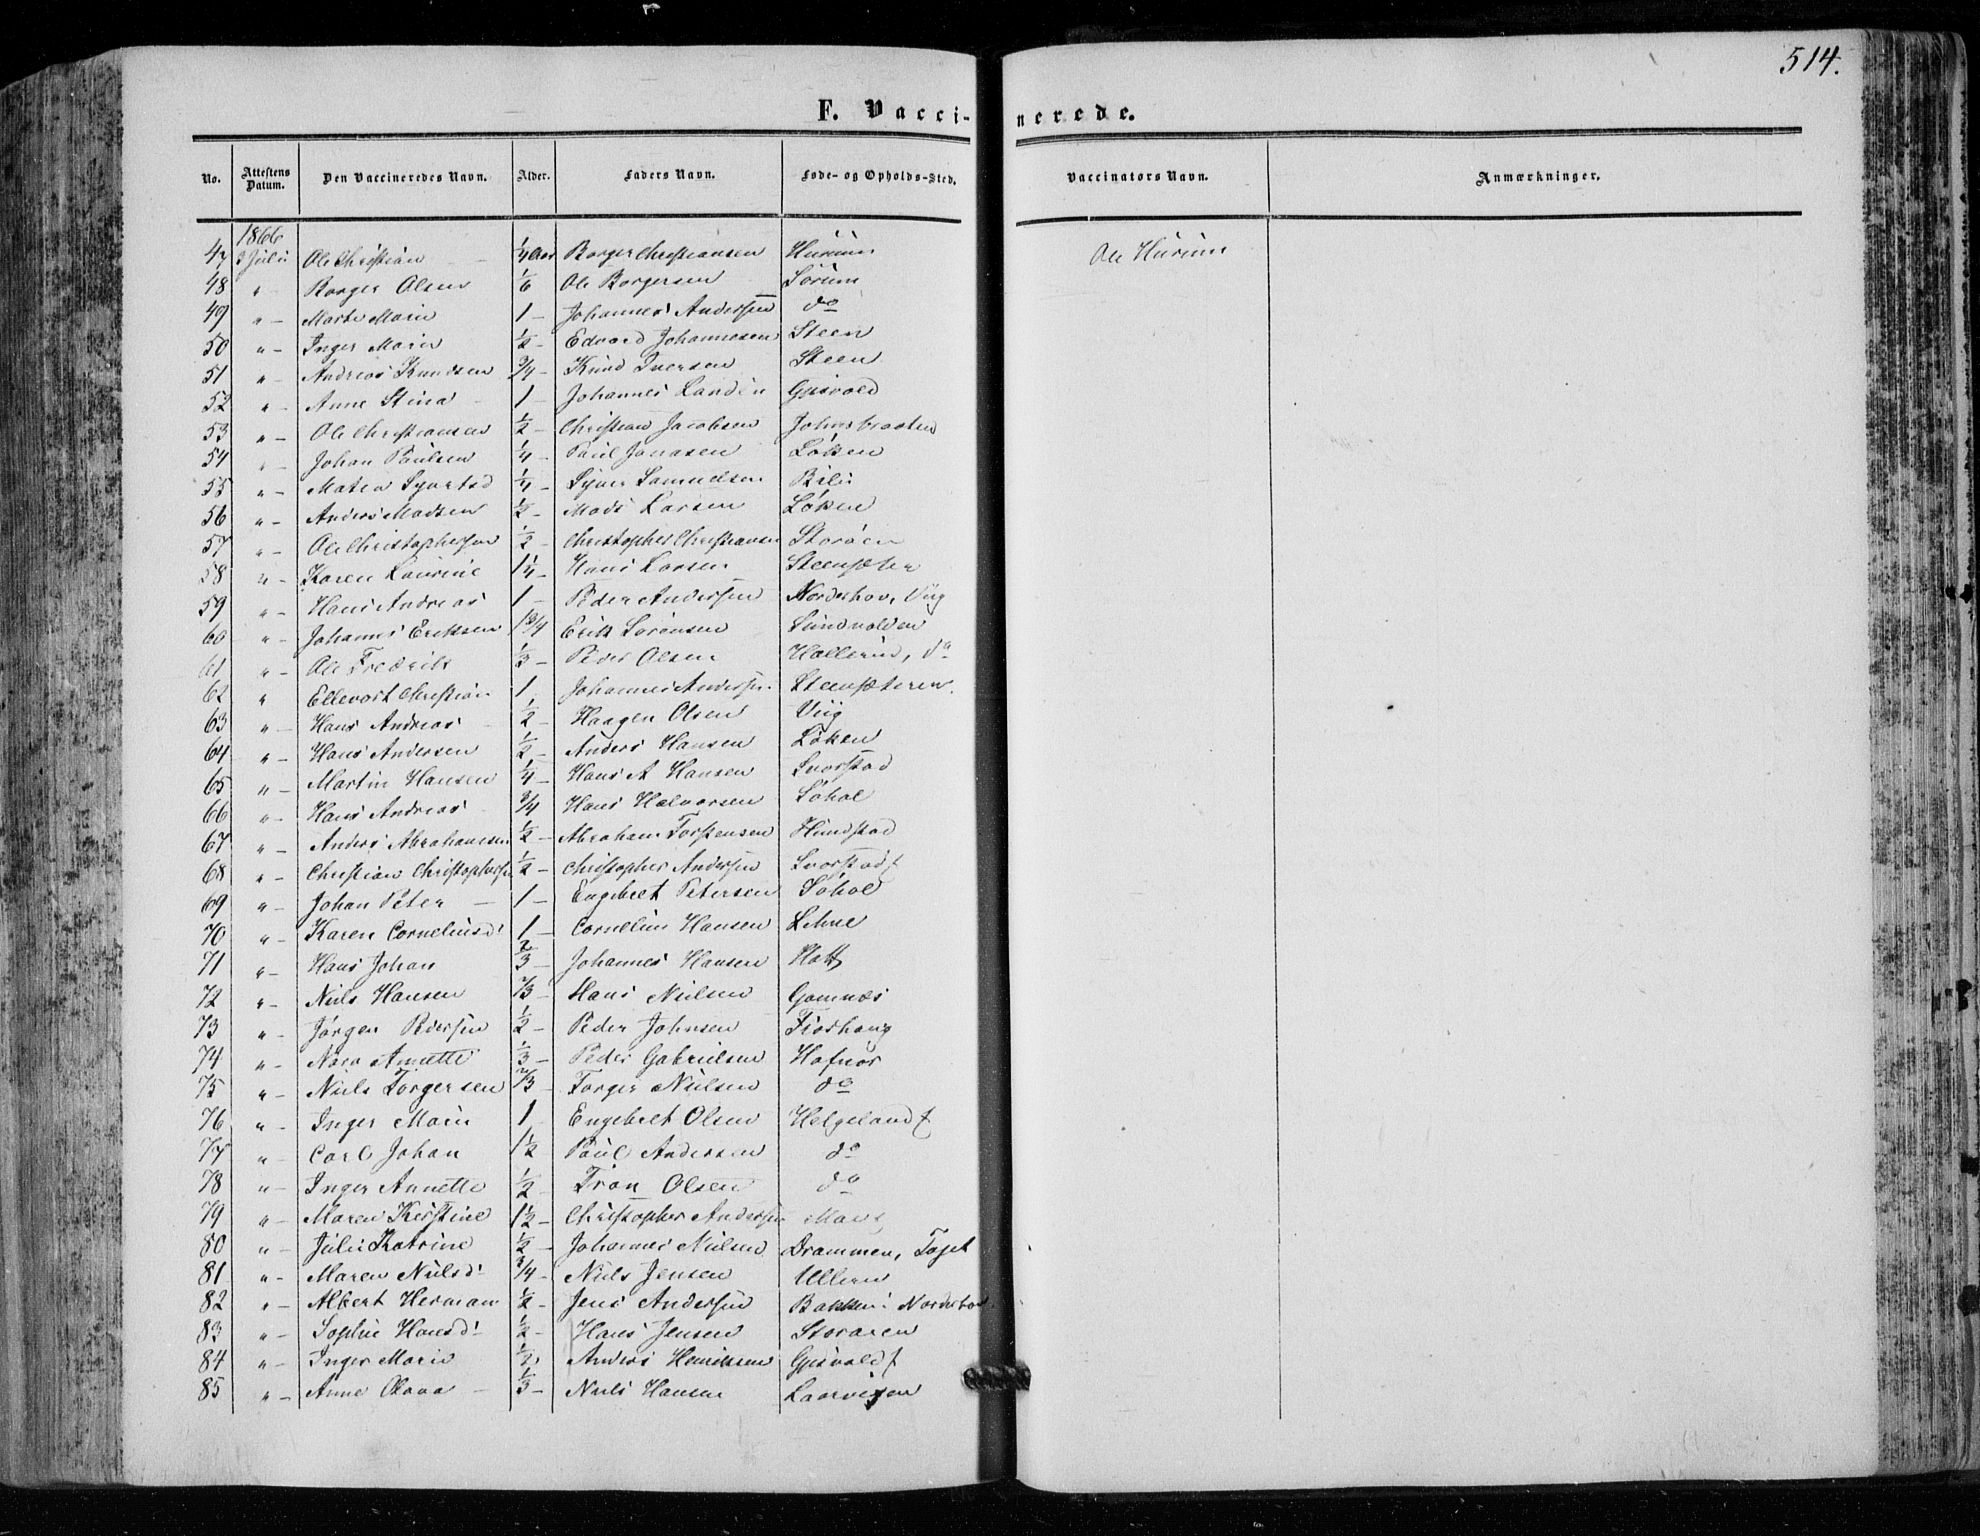 514.
F. Vaccinerede.
No. Attestens Datum. Den Vaccineredes Navn. Alder. Faders Navn. Føde- og Opholds-Sted. Vaccinators Navn. Anmærkninger.
1866
47 3 Juli Ole Christian ¼ Aar Borger Christiansen Hurum Ole Hurum
48 " Borger Olsen 1/6 Ole Borgersen Sørum
49 " – Marte Marie 1 – Johannes Andersen do
50 " – Inger Marie ½ – Edvard Johannesen Steen
51 " – Andreas Knudsen ¾ – Knud Iversen Steen
52 " – Anne Stina 1 – Johannes Gjesvold
53 " – Ole Christiansen ½ – Christian Jacobsen Johnsbraaten
54 " Johan Paulsen ¼ – Paul Jonasen Løken
55 " – Matea ¼ – Syver Samuelsen Bili
56 " – Anders Madsen ½ – Mads Larsen Løken
57 " – Ole Christophersen ½ – Christopher Christiansen Storøen
58 " – Karen Laurine 1¼ – Hans Larsen Steensæter
59 " – Hans Andreas 1 – Peder Andersen Norderhov, Viig
60 " – Johannes Eriksen 1¾ Erik Sørensen Sundvolden
61 " – Ole Fredrik ⅓ – Peder Olsen Hallerud, do
62 " Ellevort Christian 1 Johannes Andersen Steensæteren
63 " – Hans Andreas ½ – Haagen Olsen Viig
64 " – Hans Andersen ½ – Anders Hansen Løken
65 " – Martin Hansen ¼ – Hans A Hansen Svarstad
66 " – Hans Andreas ¾ Hans Halvorsen Søhol
67 " – Anders Abrahamsen ½ – Abraham Torstensen Hundstad
68 " – Christian Christophersen ½ – Christopher Andersen Svarstad
69 " – Johan Peter – 1 – Engebret Petersen Søhol
70 " – Karen Corneliusd. 1 – Cornelius Hansen Lehne
71 " – Hans Johan ⅔ – Johannes Hansen
72 " – Niels Hansen ⅔ Hans Nielsen Gomnæs
73 " Jørgen Pedersen ½ – Peder Johnsen Fjoshaug
74 " – Annette ⅓ – Peder Gabrielsen Hafnor
75 " – Niels Torgersen ⅔ Torger Nielsen do
76 " – Inger Marie 1 Engebret Olsen Helgeland
77 " – Carl Johan 1½ Paul Andersen do
78 " – Inger Annette ½ – Tron Olsen do
79 " – Maren Kirstine 1½ – Christopher Andersen
80 " – Julie Katrine ½ – Johannes Nielsen Drammen,
81 " – Maren Nielsd. ¾ – Niels Jensen Ullern
82 " – Albert Herman ½ – Jens Andersen Bakken i Norderhov
83 " – Sophie Hansd. ½ – Hans Jensen Storøen
84 " – Inger Marie ½ Anders Henriksen Gjesvold
85 " – Anne Olava – ⅓ – Niels Hansen